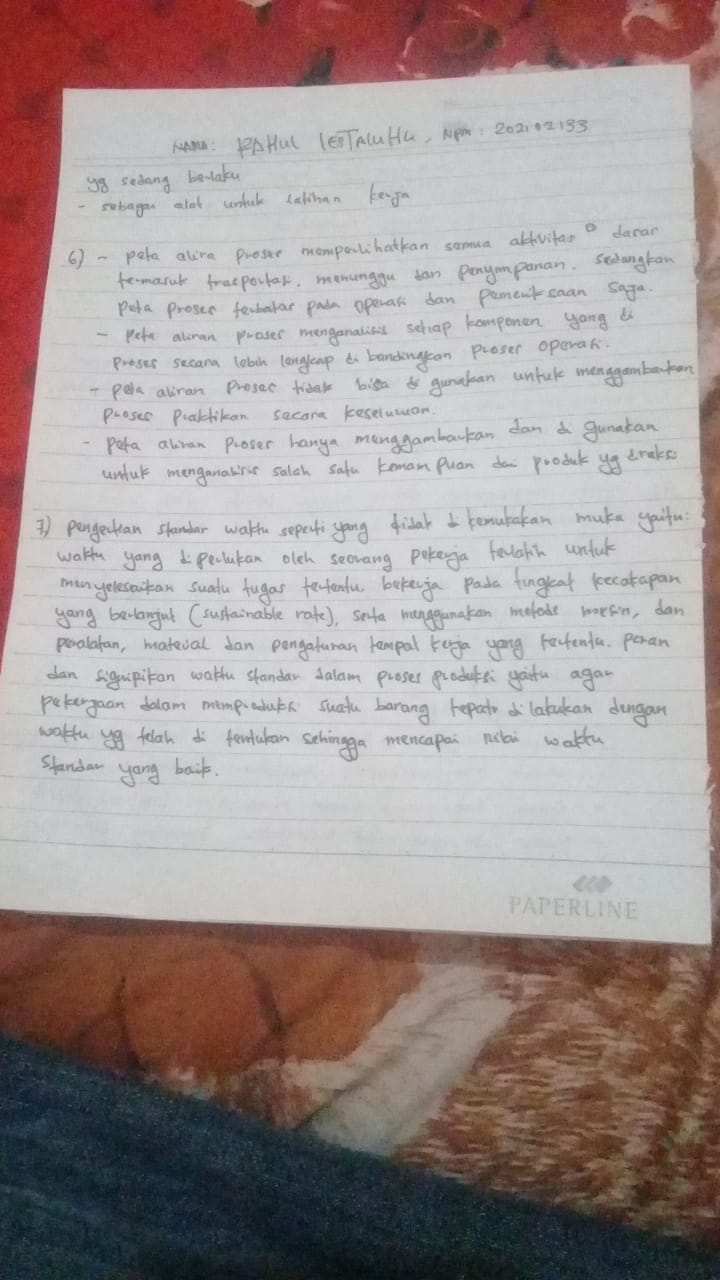 NAMA: RAHUL LESTALUHU. NPM: 202102133
yg sedang berlaku
- sebagai alat untuk latihan kerja
6) - peta alira proses memperlihatkan semua aktivitas dasar
termasuk trasportasi, menunggu dan penyimpanan. sedangkan
peta proses terbatas pada operasi dan pemeriksaan saja.
- peta aliran proses menganalisis setiap komponen yang di
proses secara lebih lengkap di bandingkan proses operasi.
- peta aliran proses tidak bisa di gunakan untuk menggambarkan
proses praktikan secara keseluruan.
- peta aliran proses hanya menggambarkan dan di gunakan
untuk menganalisis salah satu produk yg
7) pengertian standar waktu seperti yang tidak di kemukakan muka yaitu:
waktu yang di perlukan oleh seorang pekerja terlatih untuk
menyelesaikan suatu tugas tertentu, bekerja pada tingkat kecakapan
yang berlanjut (sustainable rate), serta menggunakan metode mesin, dan
peralatan, material dan pengaturan tempat kerja yang tertentu. peran
dan signipikan waktu standar dalam proses produksi yaitu agar
pekerjaan dalam memproduksi suatu barang di lakukan dengan
waktu yg telah di tentukan sehingga mencapai nilai waktu
standar yang baik.
PAPERLINE